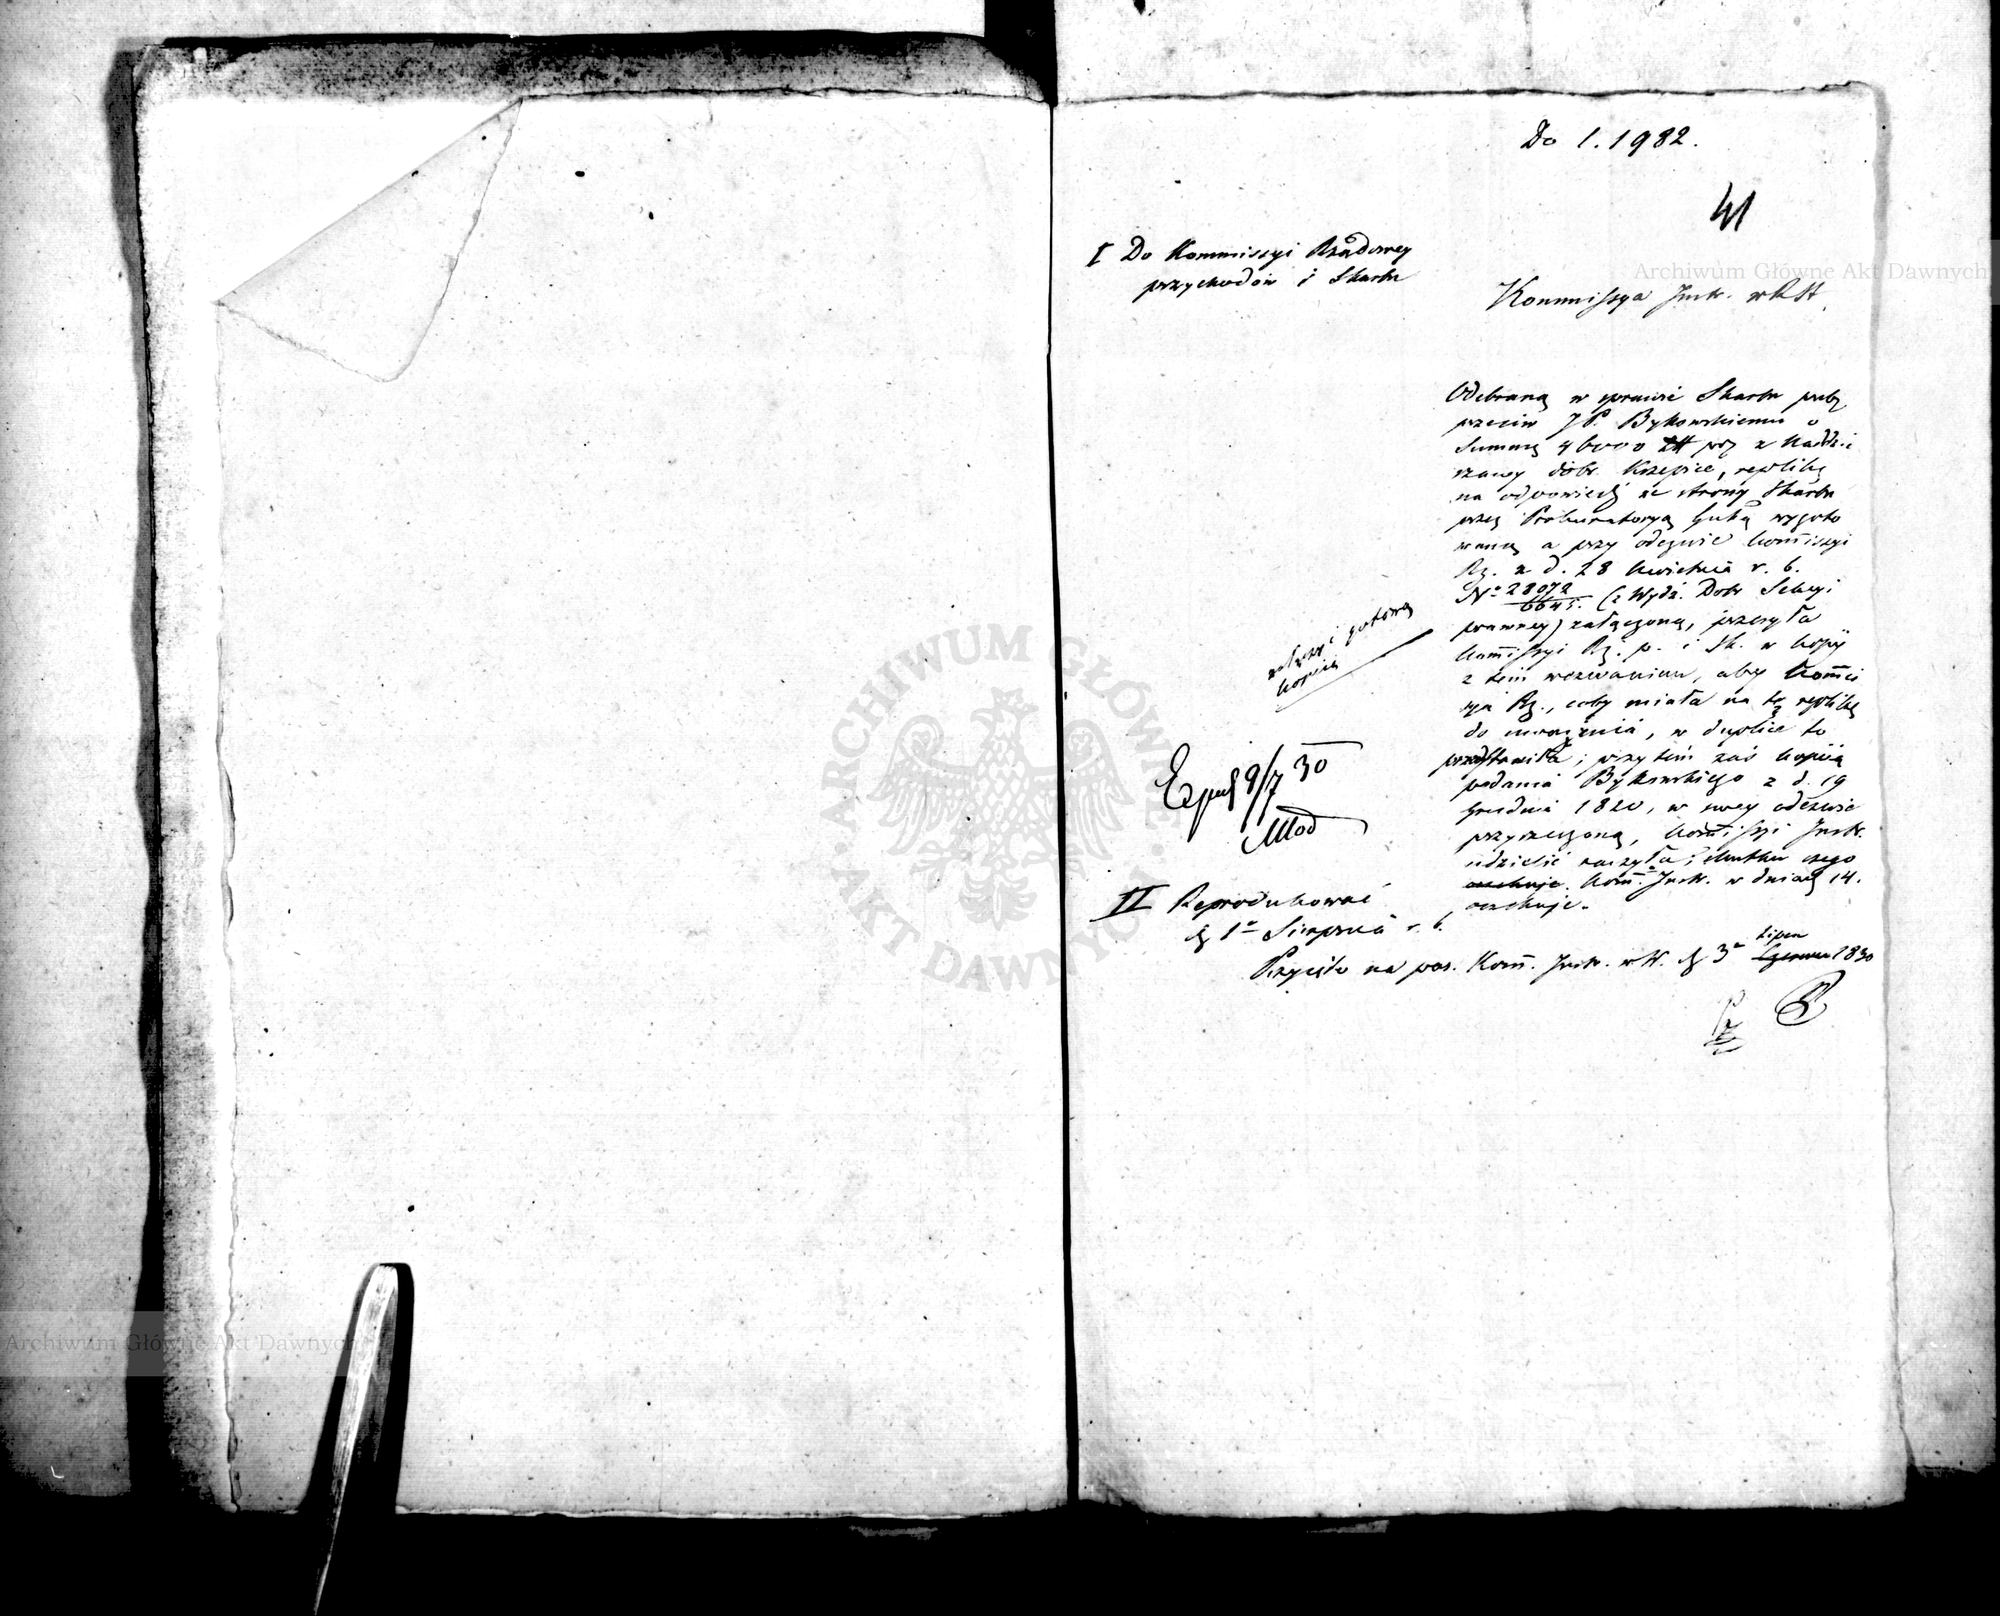 Do l. 1982.
41
Archiwum Główne Akt Dawnych
I Do Kommissyi Rządowey
przychodów i Skarbu
Kommissya Instr.
Odebraną w sprawie Skarbu publ
przeciw JP. Bykowskiemu o
Summę
dóbr Krzepice, replikę
na odpowiedź ze strony Skarbu
przez Prokuratoryą wygoto
waną a przy odezwie Kommissyi
Rz. z d. 28 Kwietnia r. b.
No 28072/6645. (z Wydz. Dóbr Sekcyi
prawney) załączoną, przesyła
Kommissyi Rz. p. i Sk. w kopii
z tem wezwaniem, aby Kommis
sya Rz., coby miała na tę replikę
do uważenia, w duplice to
przedstawiła; przytem zaś kopiią
podania Bykowskiego z d. 19
Grudnia 1820, w owey odezwie
przyrzeczoną, Kommissyi Instr.
udzielić raczyła; skutku czego
oczekuje Komm. Instr. w dniach 14.
oczekuje.
załączyć gotową
kopiią
Exped 9/7 30
Mod
II Reprodukować
d. 1o Sierpnia r. b.
Przyjęto na pos. Komm. Instr. w W. d. 3o Czerwca 1830
Lipca
ARCHIWUM GŁÓWNE AKT DAWNYCH
Archiwum Główne Akt Dawnych